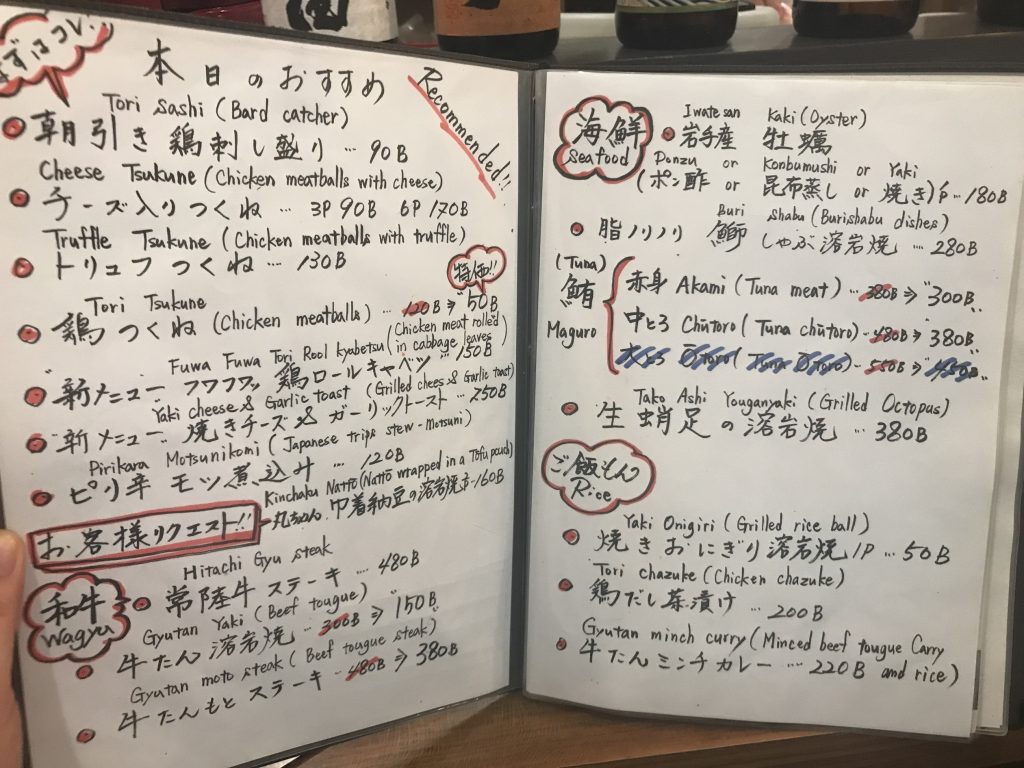 まずはコレ!
本日のおすすめ
Recommended!!
Tori sashi (Bard catcher)
朝引き鶏刺し盛り … 90B
Cheese Tsukune (Chicken meatballs with cheese)
チーズ入りつくね … 3P 90B 6P 170B
Truffle Tsukune (Chicken meatballs with truffle)
トリュフつくね … 130B
特価!!
Tori Tsukune
鶏つくね (Chicken meatballs) … 120B ⇒ "50B"
Fuwa Fuwa Tori Rool kyabetsu (Chicken meat rolled in cabbage leaves)
新メニュー フワフワッ 鶏ロールキャベツ … 150B
Yaki cheese & Garlic toast (Grilled chees & Garlic toast)
新メニュー 焼きチーズ & ガーリックトースト … 250B
Pirikara Motsunikomi (Japanese trips stew-Motsuni)
ピリ辛 モツ煮込み … 120B
Kinchaku Nattō (Nattō wrapped in a Tōfu pouch)
お客様リクエスト!! 丸ちゃん 巾着納豆の溶岩焼き-160B
和牛
Wagyu
Hitachi Gyu steak
常陸牛ステーキ … 480B
Gyutan Yaki (Beef tougue)
牛たん溶岩焼 … 300B ⇒ "150B"
Gyutan moto steak (Beef tougue steak)
牛たんもとステーキ - 480B ⇒ 380B
海鮮
Seafood
Iwate san Kaki (Oyster)
岩手産 牡蠣
Ponzu or Konbumushi or Yaki
(ポン酢 or 昆布蒸し or 焼き) 1P … 180B
Buri shabu (Burishabu dishes)
脂ノリノリ 鰤しゃぶ溶岩焼 … 280B
(Tuna)
鮪
Maguro
赤身 Akami (Tuna meat) … 380B ⇒ "300B"
中とろ Chūtoro (Tuna chūtoro) - 480B ⇒ 380B
大とろ Ōtoro (Tuna Ōtoro) - 550B ⇒ "450B"
Tako Ashi Youganyaki (Grilled Octopus)
生蛸足の溶岩焼 … 380B
ご飯もん
Rice
Yaki Onigiri (Grilled rice ball)
焼きおにぎり溶岩焼 1P … 50B
Tori chazuke (Chicken chazuke)
鶏だし茶漬け … 200B
Gyutan minch curry (Minced beef tougue Carry and rice)
牛たんミンチカレー … 220B